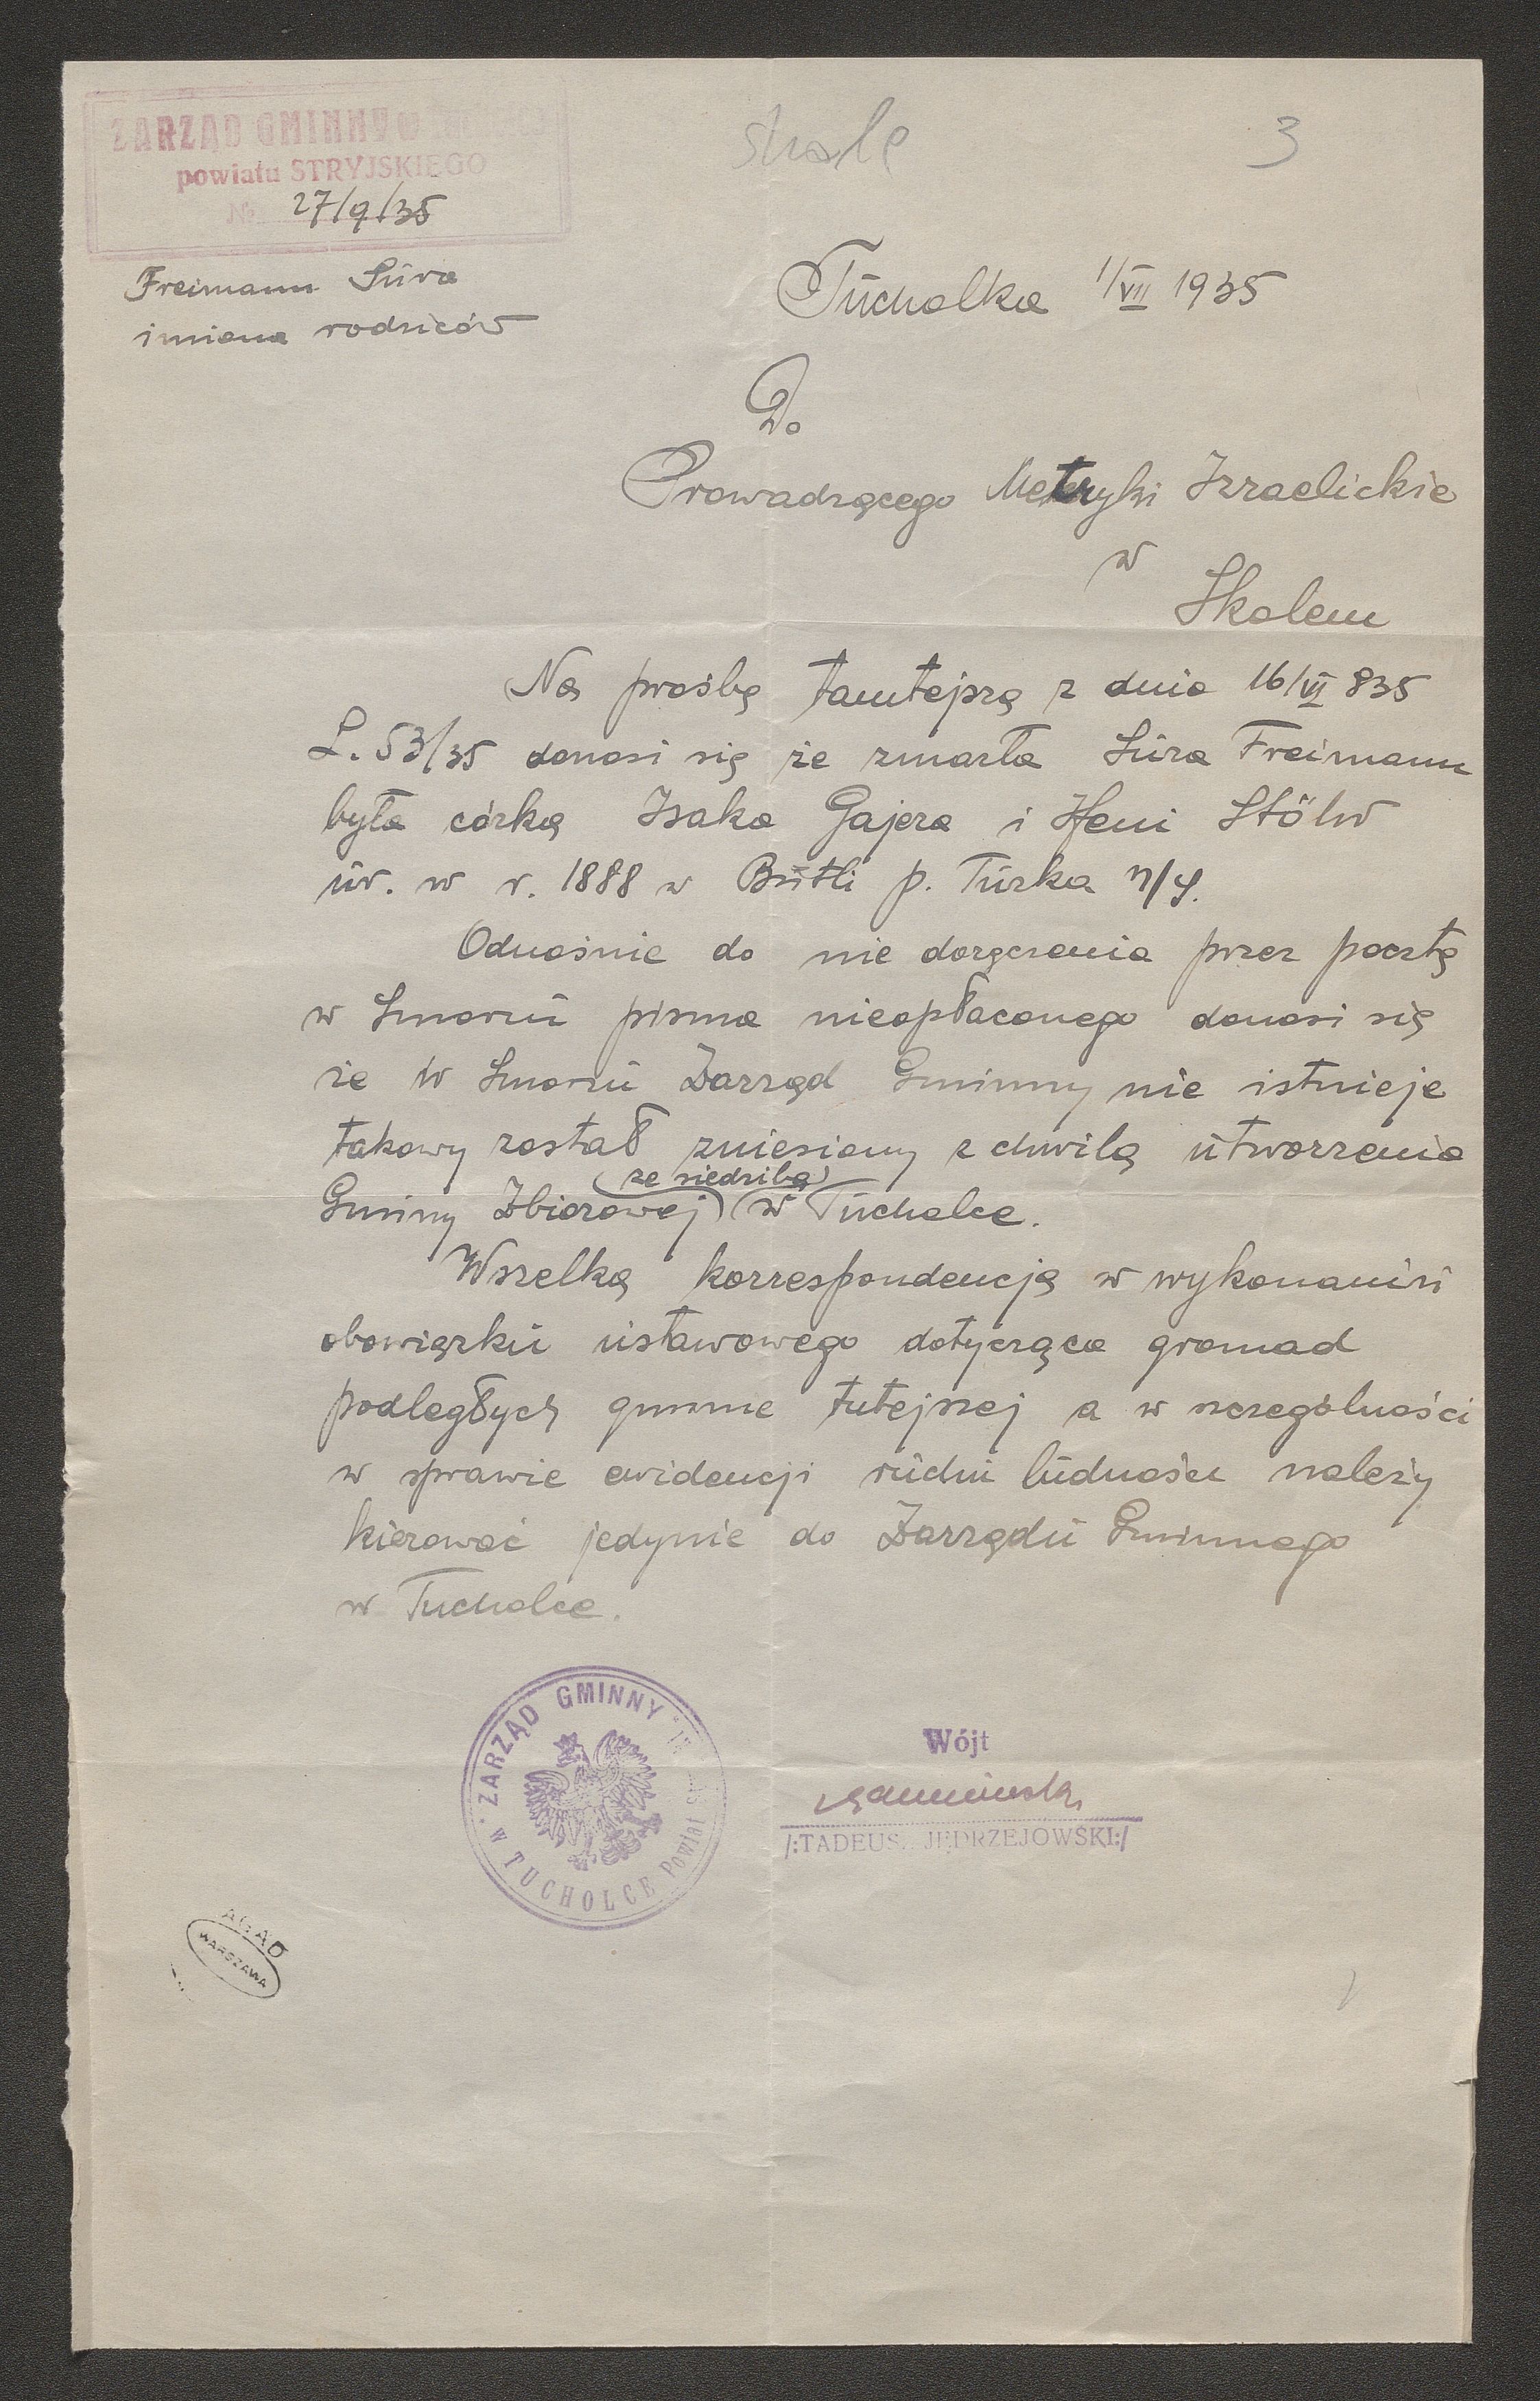 ZARZĄD GMINNY W
powiatu STRYJSKIEGO
№ 27/9/35
Freimann Sura
imiona rodziców
Skole
3
Tucholka 1/VII 1935
Do
Prowadzącego Metryki Izraelickie
w
Skolem
Na prośbę tamtejszą z dnia 16/VI 835
L. 53/35 donosi się że zmarła Sura Freimann
była córką Isaka Gajera i Heni Stölw
ur. w r. 1888 w Butli p. Turka n/S.
Odnośnie do nie doręczenia przez pocztę
w Smorzu pisma nieopłaconego donosi się
że w Smorzu Zarząd Gminny nie istnieje
takowy został zniesiony z chwilą utworzenia
Gminy Zbiorowej (ze siedzibą) w Tucholce.
Wszelką korrespondencją w wykonaniu
obowiązku ustawowego dotycząca gromad
podległych gminie tutejszej a w szczególności
w sprawie ewidencji ruchu ludności należy
kierować jedynie do Zarządu Gminnego
w Tucholce.
ZARZĄD GMINNY
w TUCHOLCE Powiat
Wójt
/:TADEUS JĘDRZEJOWSKI:/
AGAD
WARSZAWA